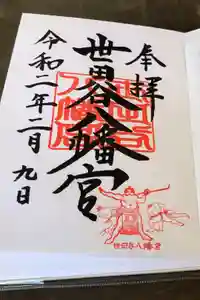 奉拝
世田谷八幡宮
令和二年二月九日
世田谷八幡宮